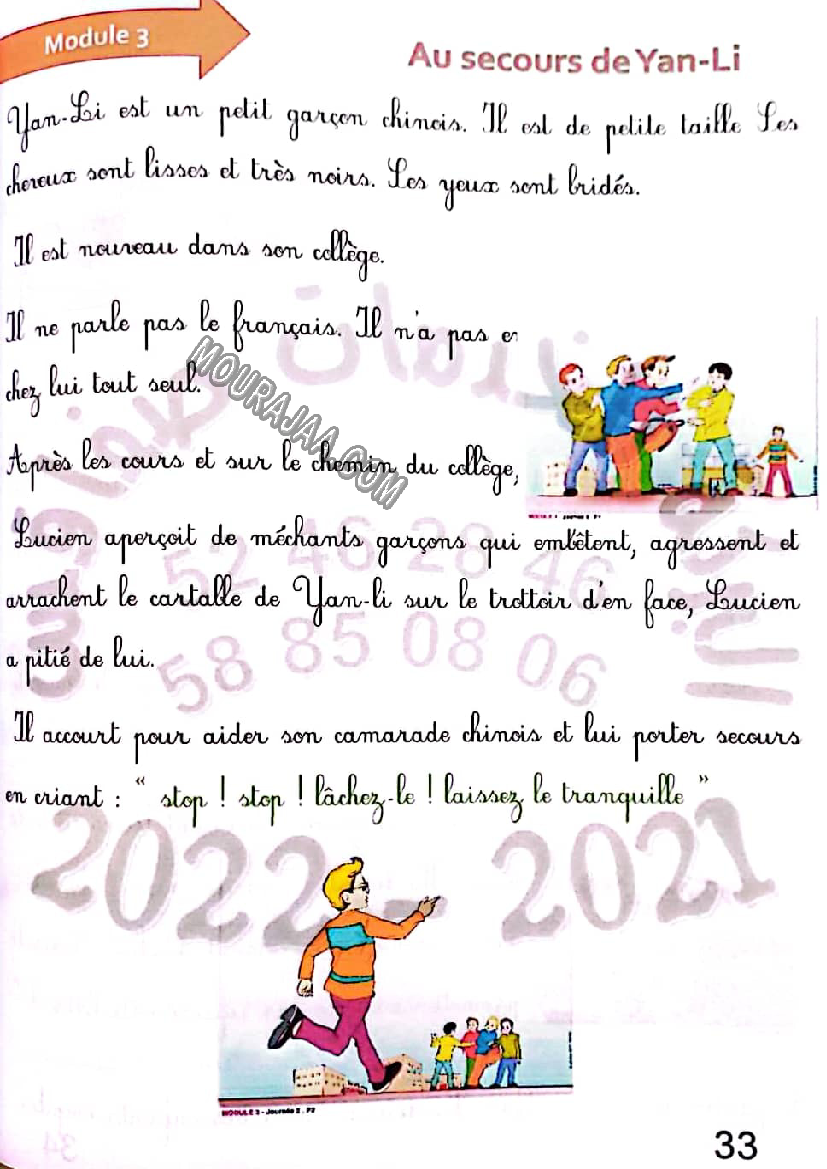 Module 3
Au secours de Yan-Li
Yan-Li est un petit garçon chinois. Il est de petite taille Ses
cheveux sont lisses et très noirs. Ses yeux sont bridés.
Il est nouveau dans son collège.
Il ne parle pas le français. Il n'a pas e
chez lui tout seul.
MOURAJAA.COM
Après les cours et sur le chemin du collège,
Lucien aperçoit de méchants garçons qui embêtent, agressent et
52 46 28 46
arrachent le cartable de Yan-li sur le trottoir d'en face, Lucien
a pitié de lui.
58 85 08 06
Il accourt pour aider son camarade chinois et lui porter secours
en criant : " stop ! stop ! lâchez-le ! laissez le tranquille "
2022 - 2021
MODULE 3 - Journée 2 - P2
33
34